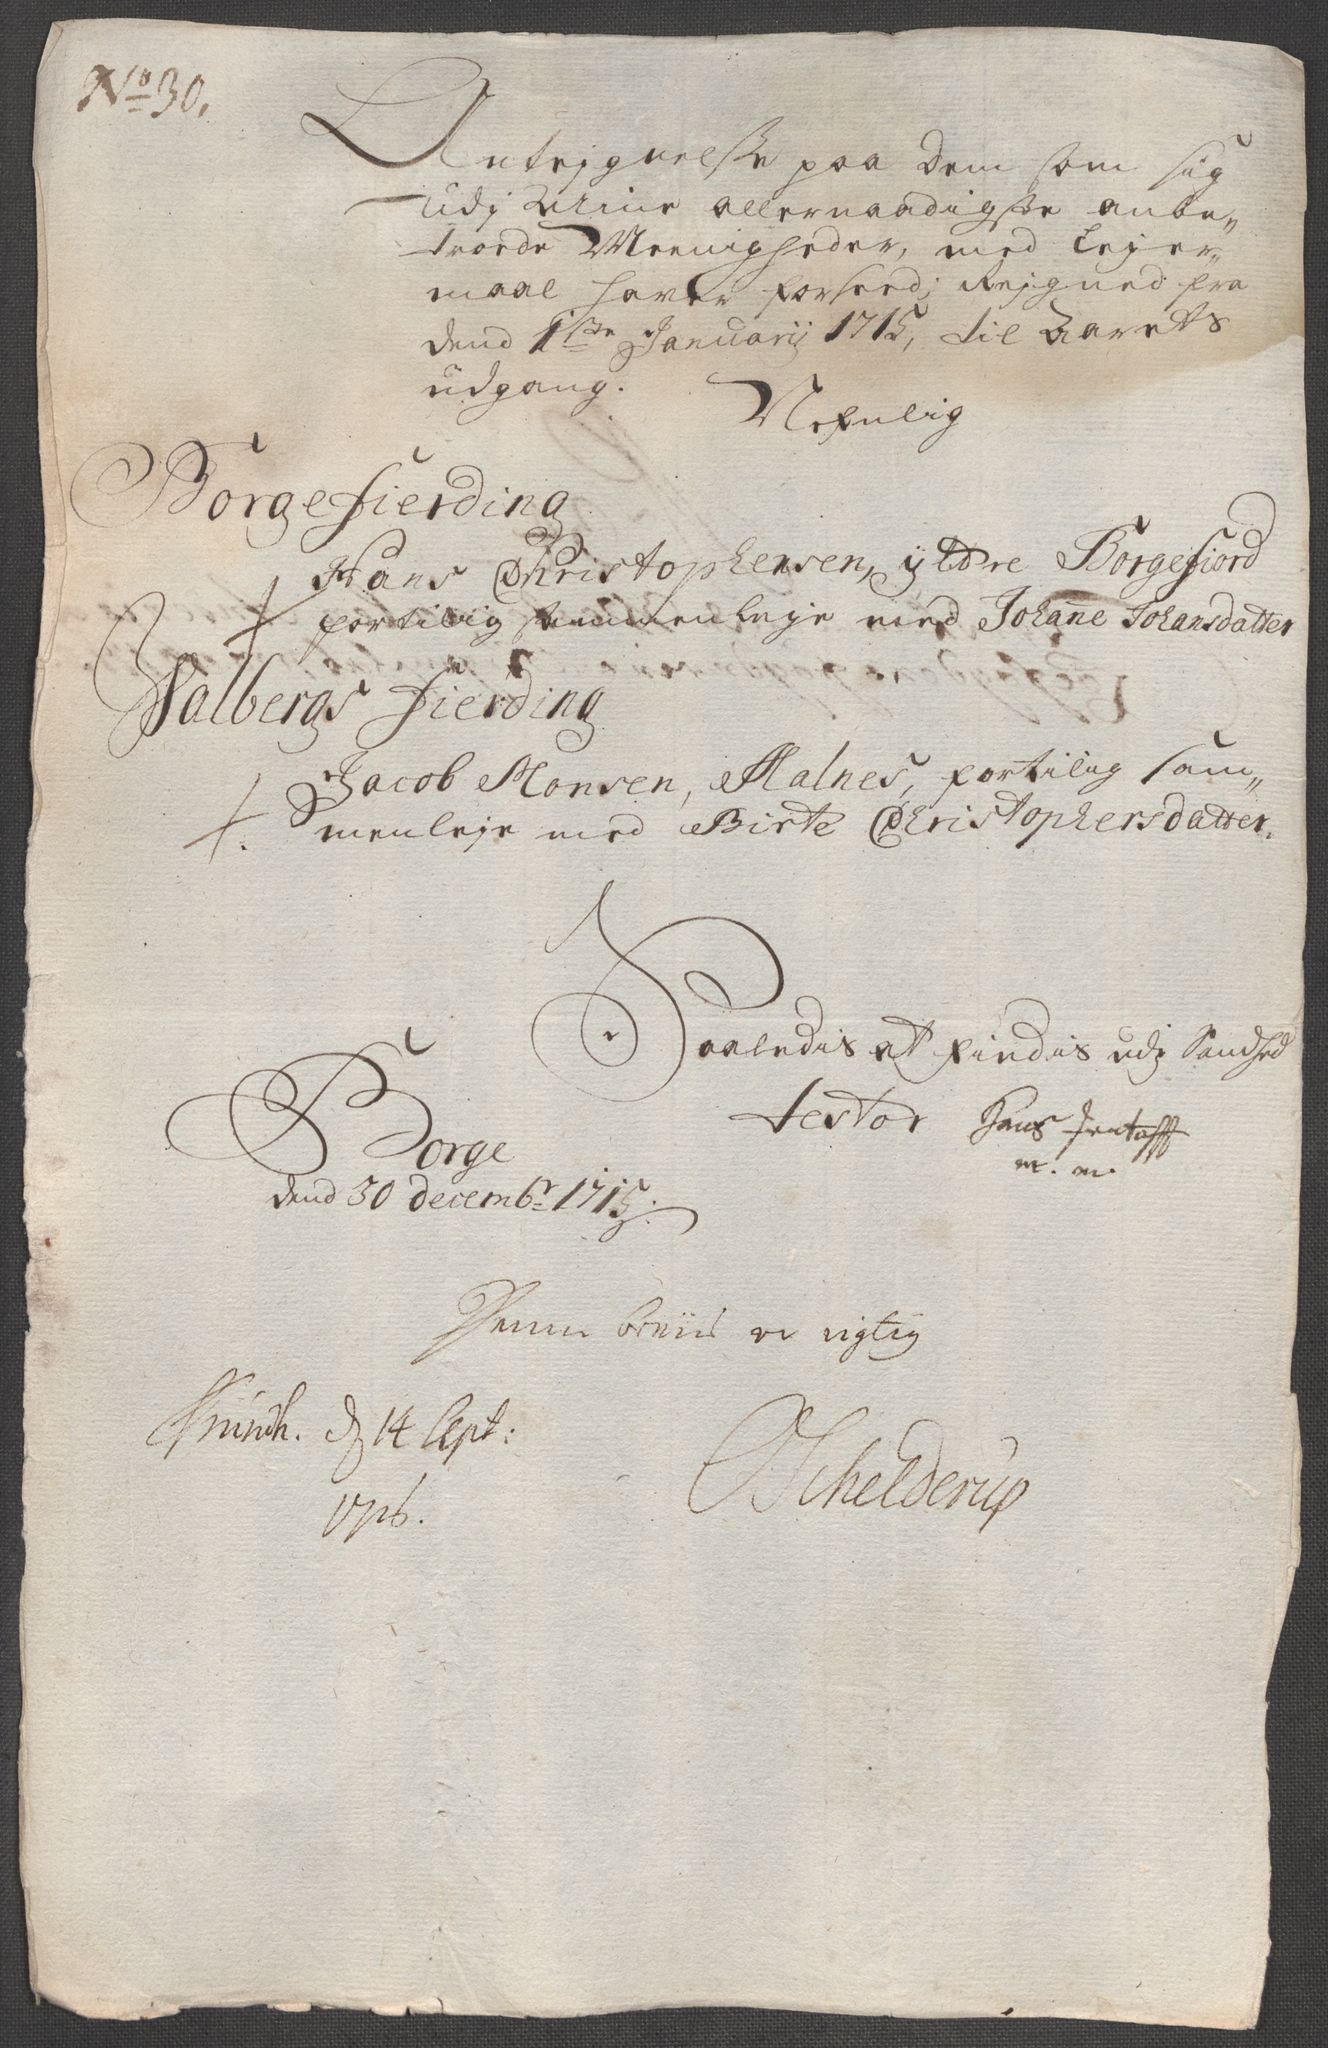 No 30.
Antejgnelse paa dem som sig
udj mine allernaadigste anbe-
troede Meenigheder, med Lejer-
maal haver forseed; Rejgned fra
dend 1ste Januarij 1715, til Aarets
udgang.
Nefnlig
Borgefierding
Hans Christophersen, yttre Borgefiord
fortilig sammenleje med Johane Johansdatter
Valbergs fierding
Jacob Monsen, Malnes, fortilig sam-
menleje med Birte Christophersdatter.
Saaledis at findis udj Sandhed
testor Hans Jentofft
m. m.
Borge
dend 30 decembr 1715.
Denne beviis er rigtig
Trundh. d 14 Sept:
1716.
Schelderup